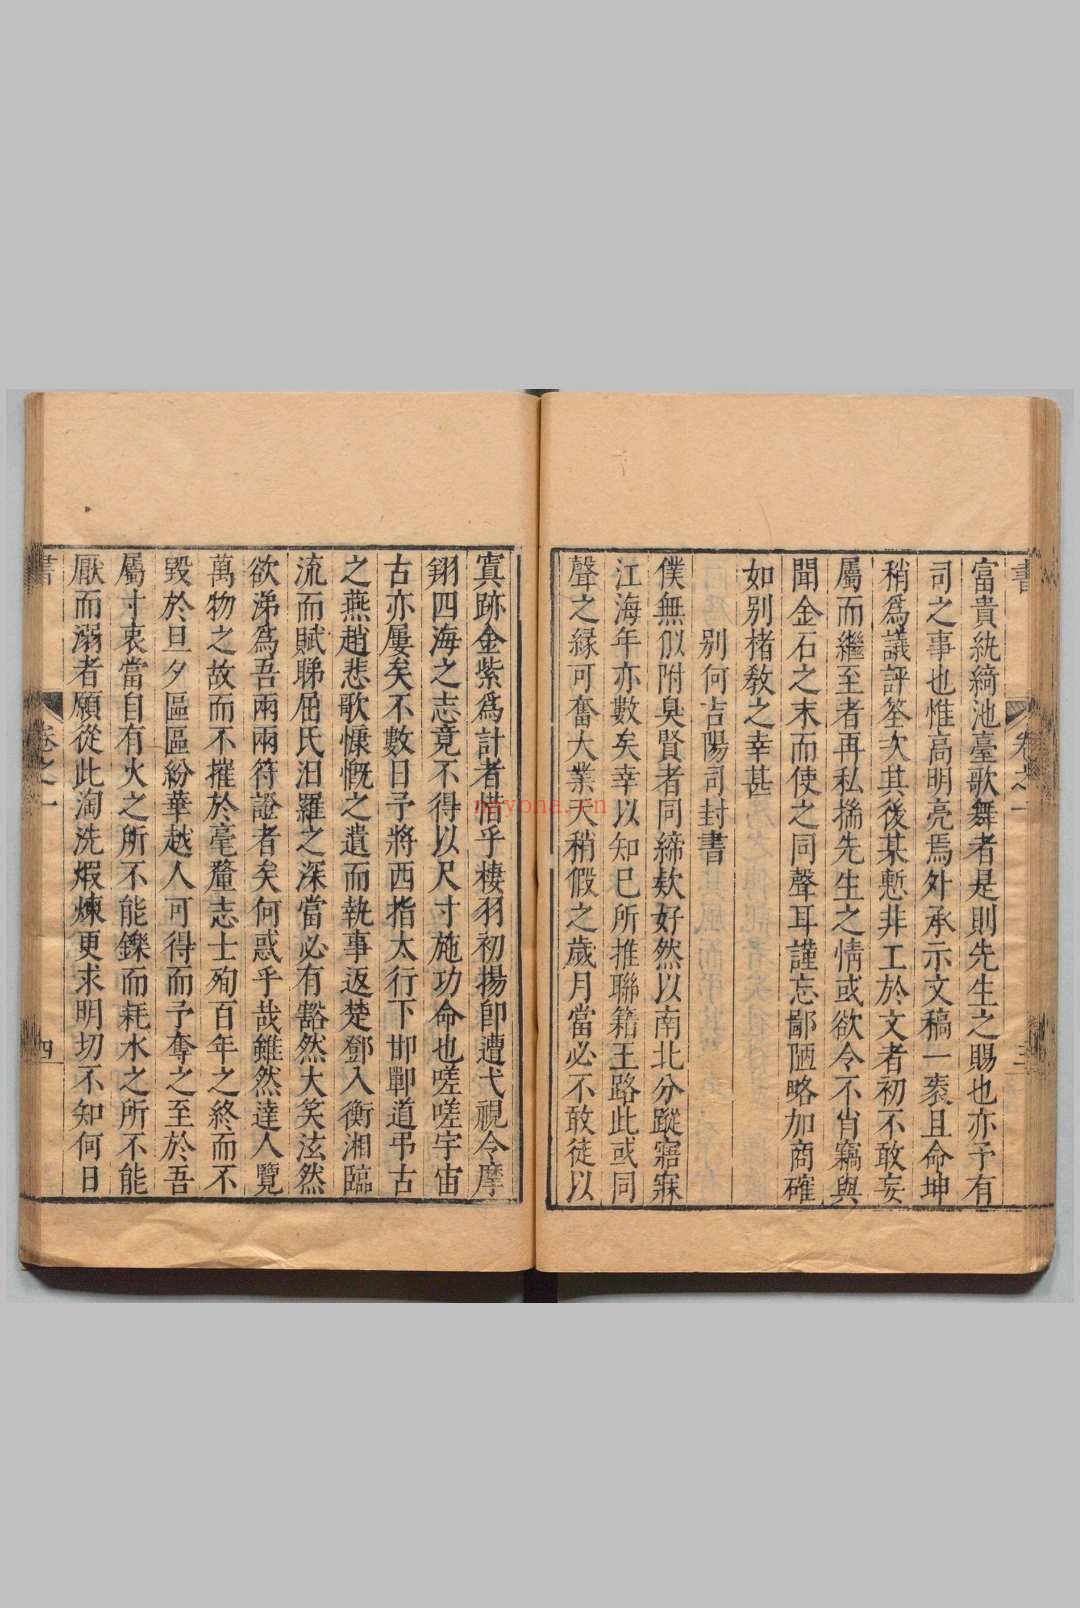 書 卷之一 三
富貴紈綺池臺歌舞者是則先生之賜也亦予有
司之事也惟高明亮焉外承示文稿一袠且命坤
稍爲議評筌次其後某慙非工於文者初不敢妄
屬而繼至者再私揣先生之情或欲令不肖竊與
聞金石之末而使之同聲耳謹忘鄙陋略加商確
如别楮敎之幸甚
别何吉陽司封書
僕無似附臭賢者同締欸好然以南北分蹤寤寐
江海年亦數矣幸以知已所推聯籍王路此或同
聲之縁可奮大業天稍假之歲月當必不敢徒以
寘跡金紫爲計者惜乎棲羽初揚卽遭弋視令摩
翔四海之志竟不得以尺寸施功命也嗟嗟宇宙
古亦屢矣不數日予將西指太行下邯鄲道弔古
之燕趙悲歌慷慨之遺而執事返楚鄧入衡湘臨
流而賦睇屈氏汨羅之深當必有豁然大笑泫然
欲涕爲吾兩兩符證者矣何惑乎哉雖然達人覽
萬物之故而不摧於毫釐志士殉百年之終而不
毀於旦夕區區紛華越人可得而予奪之至於吾
屬寸衷當自有火之所不能鑠而耗水之所不能
厭而溺者願從此淘洗煆煉更求明切不知何日
書 卷之一 四
nayona.cn